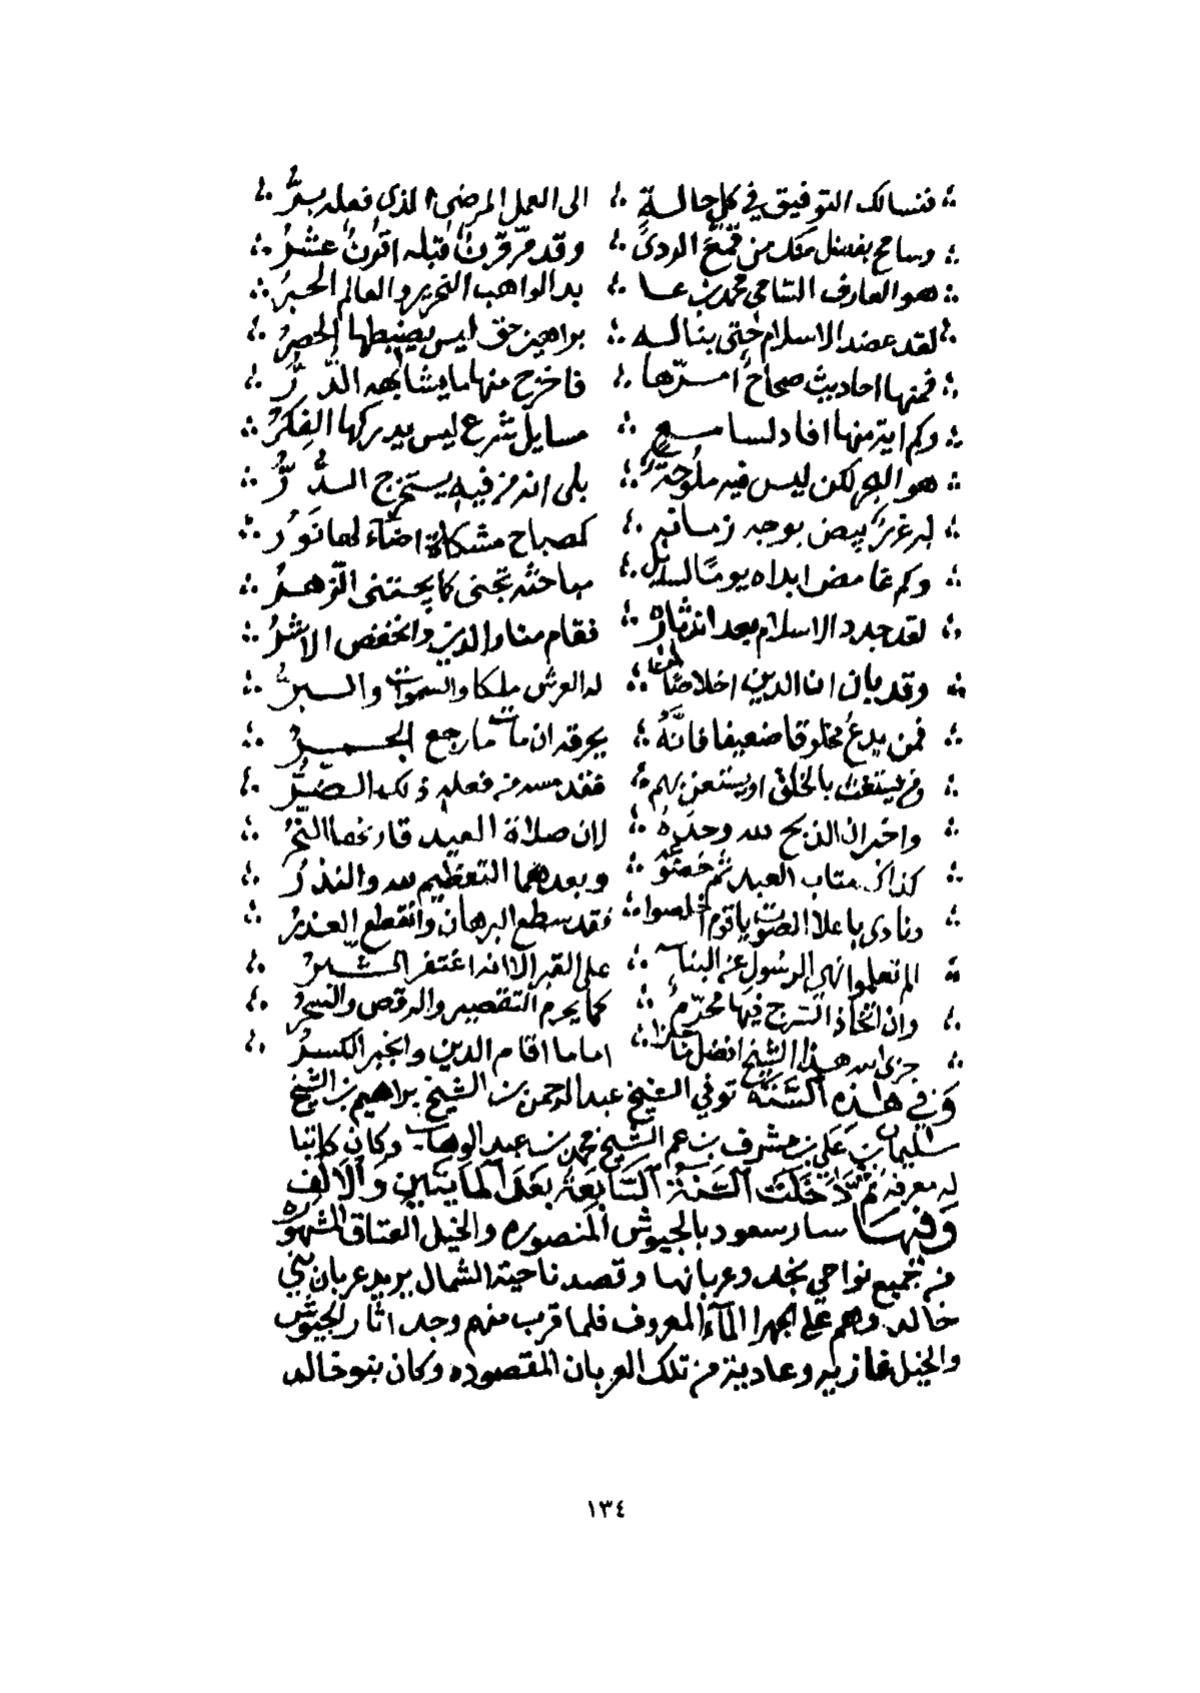 فنسالك التوفيق في كل حالة ∴ الى العمل المرضي الذي فعله بر
وسامح بفضل منك من قمع الردى ∴ وقد مر قرن قبله اقرن عشر
هو العارف الشامي محمد بن عا ∴ بد الواهب النحرير والعالم الحبر
لقد عضد الاسلام حتى بنا له ∴ براهين حق ليس يضبطها الحصر
فمنها احاديث صحاح امرها ∴ فاخرج منها ما يشابهه الدر
وكم اية منها افاد لسامع ∴ مسايل شرع ليس يدركها الفكر
هو البحر لكن ليس فيه ملوحة ∴ بلى انه من فيه يستخرج الدر
له غرر بيض بوجه زمانه ∴ كمصباح مشكاة اضاء لها نور
وكم غامض ابداه يوما لسايل ∴ مباحثه تجنى كما يجتنى الزهر
لقد جدد الاسلام بعد اندثاره ∴ فقام منار الدين وانخفض الاشر
وقد بان ان الدين اخلاصنا لمن ∴ له العرش ملكا والسموات والبر
فمن يدع مخلوقا ضعيفا فانه ∴ يحرقه ان مات ما رجع الجمر
ومن يستغث بالخلق او يستعن بهم ∴ فقد مسه من فعله ذلك الضر
واخبر ان الذبح لله وحده ∴ لان صلاة العبد قارنها النحر
كذاك متاب العبد ثم خضوعه ∴ وبعدهما التعظيم لله والنذر
ونادى باعلا الصوت يا قوم اخلصوا ∴ فقد سطع البرهان وانقطع العذر
الم تعلموا نهي الرسول عن البنا ∴ على القبر الا انه اغتفر الشبر
وان اتخاذ السرج فيها محرم ∴ كما يحرم التقصير والرقص والنحر
جزى الله هذا الشيخ افضل ما جزا ∴ اماما اقام الدين وانجبر الكسر
وفي هذه السنة توفي الشيخ عبد الرحمن بن الشيخ براهيم بن الشيخ
سليمان بن علي بن مشرف بن عم الشيخ محمد بن عبد الوهاب وكان كاتبا
له معرفة ثم دخلت السنة السابعة بعد المايتين والالف
وفيها سار سعود بالجيوش المنصوره والخيل العتاق المشهوره
من جميع نواحي نجد وعربانها وقصد ناحية الشمال يريد عربان بني
خالد وهم على الجهرا المآء المعروف فلما قرب منهم وجد اثار لجيوش
والخيل غازيه وعادية من تلك العربان المقصوده وكان بنو خالد
١٣٤